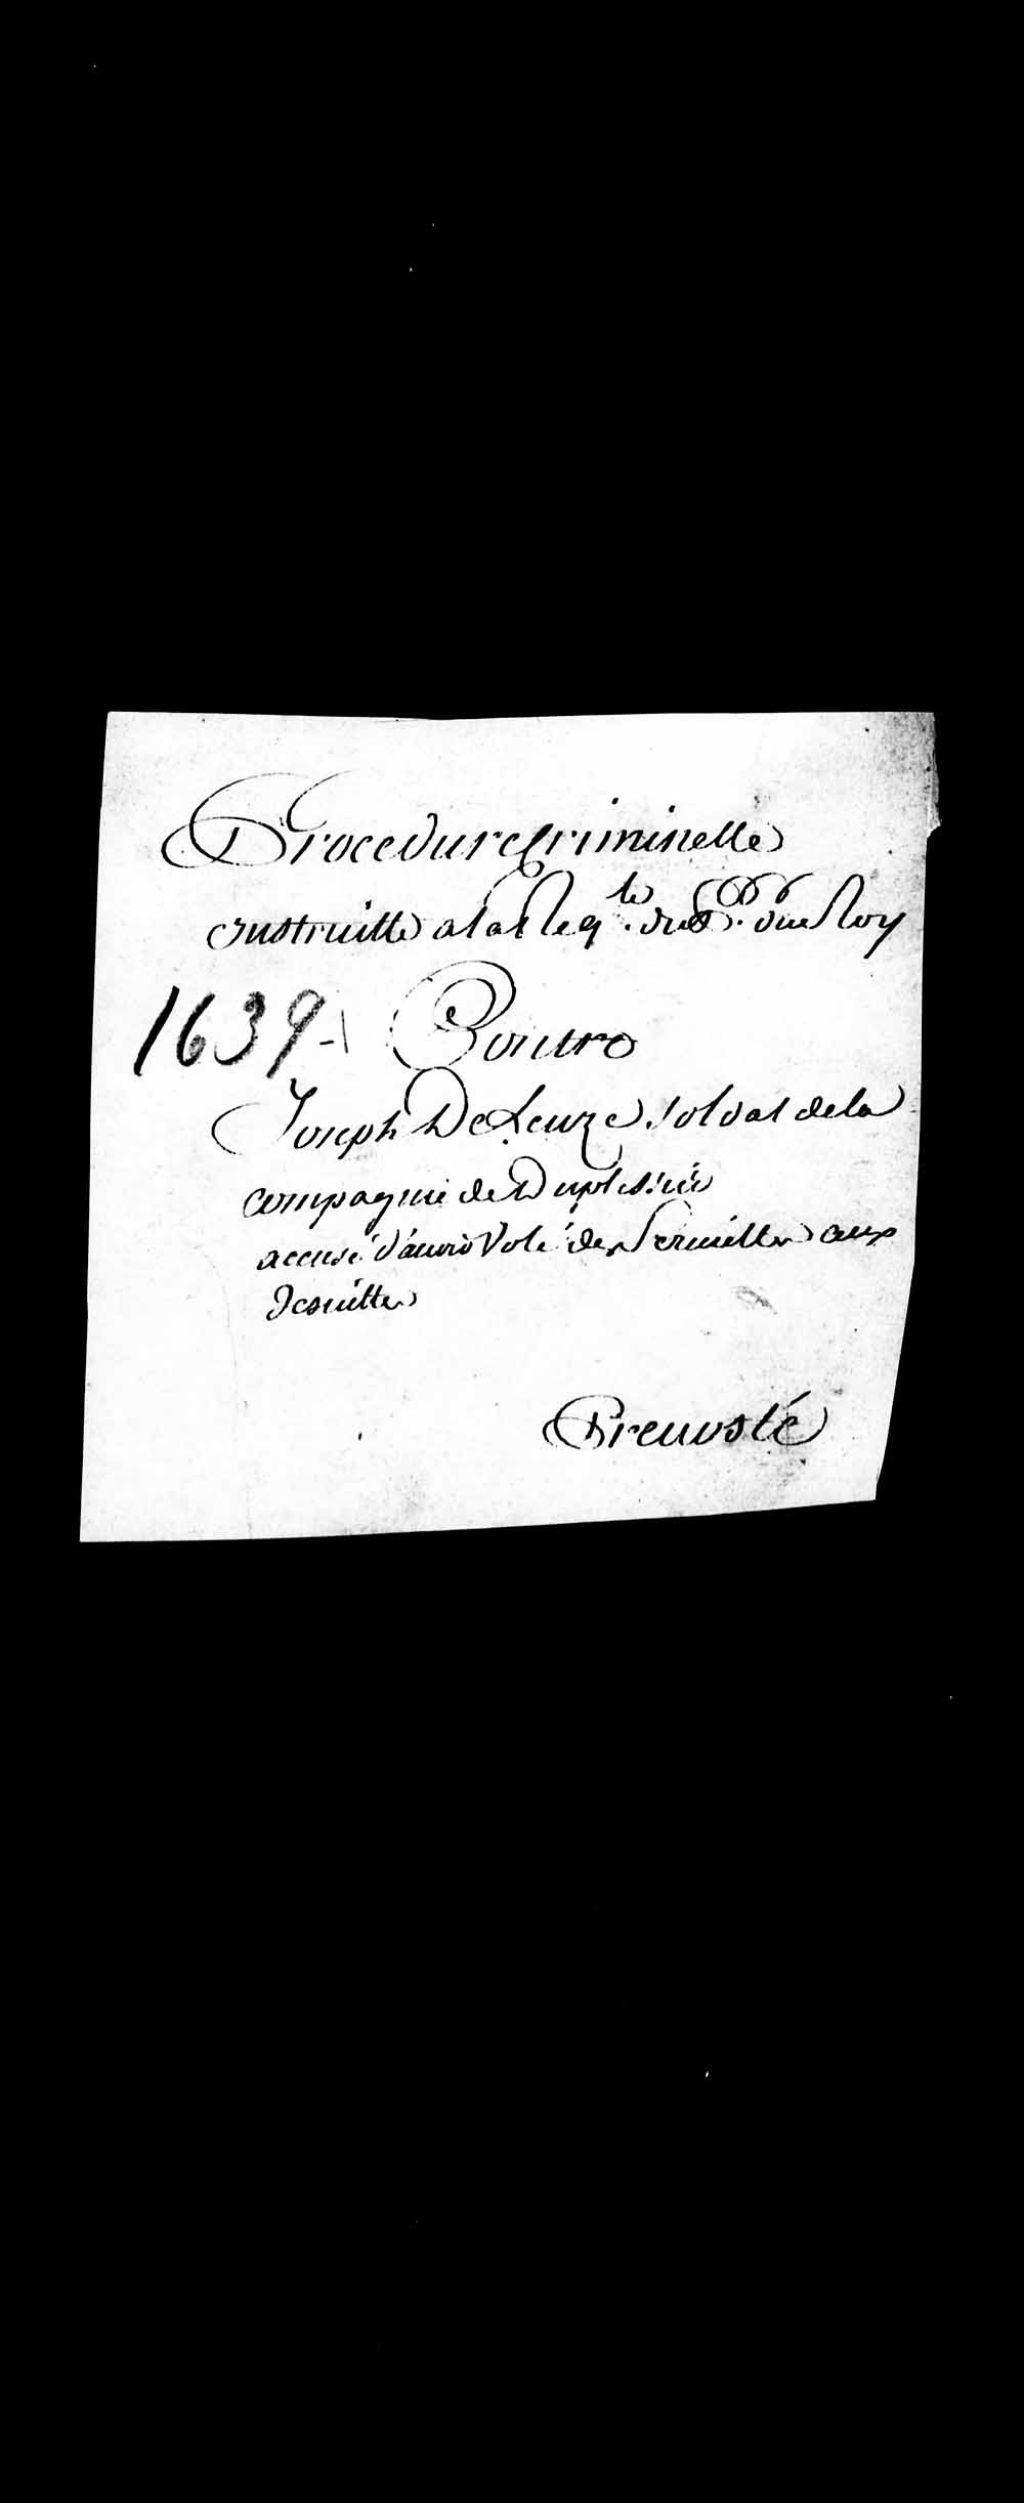 Procedure Criminelle
Instruitte a la Req.te du P.r du Roy
1639-1 Contre
Joseph De Leuze soldat de la
compagnie de Duplessis
accusé d'auoir Volé des Seruiettes aux
Jesuittes
Preuosté